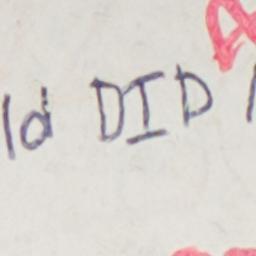 ld DID